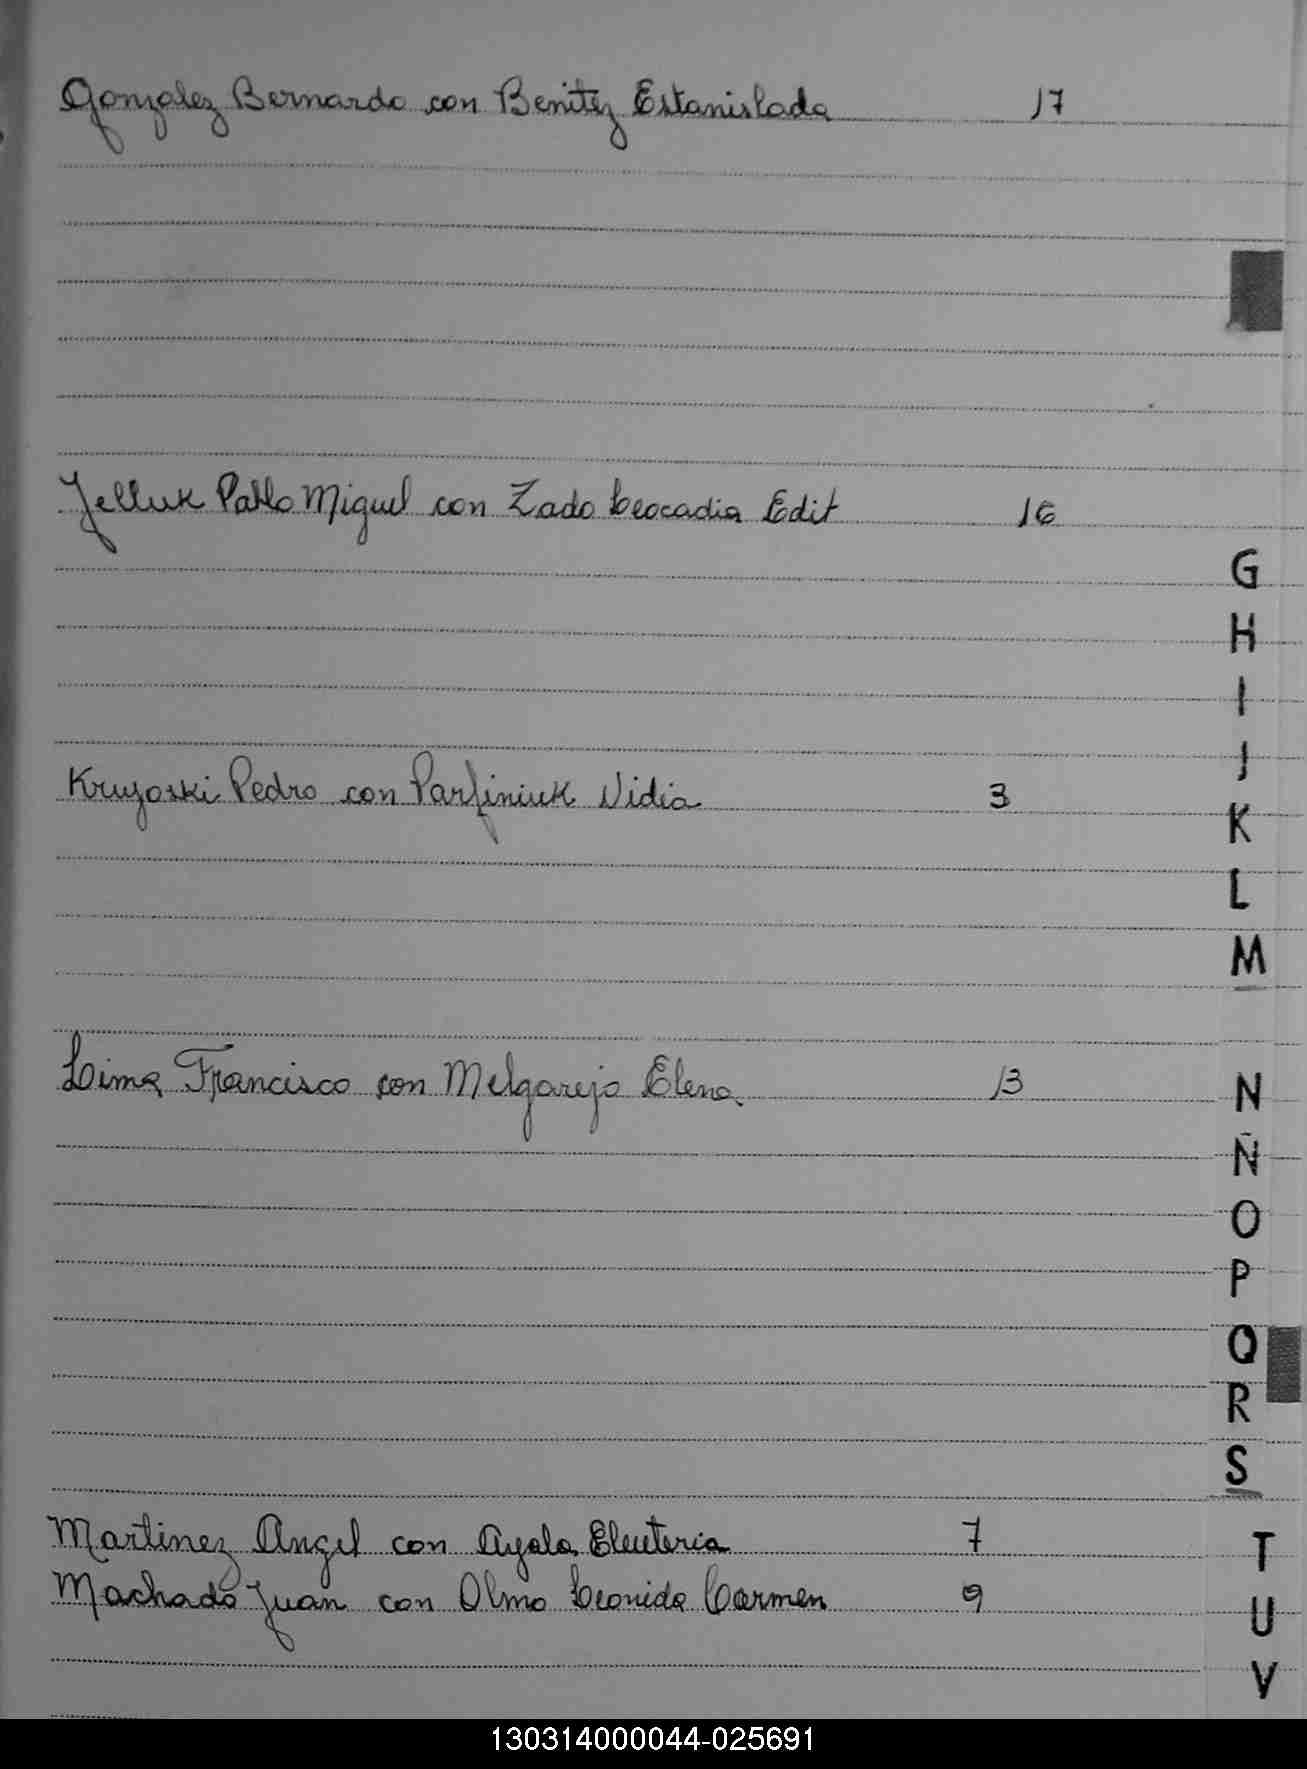 Gonzalez Bernardo con Benitez Estanislada 17
Jelluk Pablo Miguel con Zado Leocadia Edit 16
G
H
I
J
Kruyoski Pedro con Parfiniuk Nidia 3
K
L
M
Lima Francisco con Melgarejo Elena 13
N
Ñ
O
P
Q
R
S
Martinez Angel con Ayala Eleuteria 7
T
Machado Juan con Olmo Leonida Carmen 9
U
V
130314000044-025691